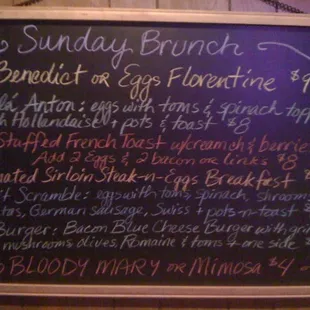 Sunday Brunch
Benedict or Eggs Florentine $9
Anton: eggs with toms & spinach
Hollandaise + pots & toast $8
Stuffed French Toast w/cream & berrie
Add 2 Eggs & 2 bacon or links $8
nated Sirloin Steak-n-Eggs Breakfast $
Scramble: eggs with toms, spinach, shroom
German sausage, Swiss + pots-n-toast $
Burger: Bacon Blue Cheese Burger with gri
mushrooms, olives, Romaine & toms + one side $
BLOODY MARY or Mimosa $4